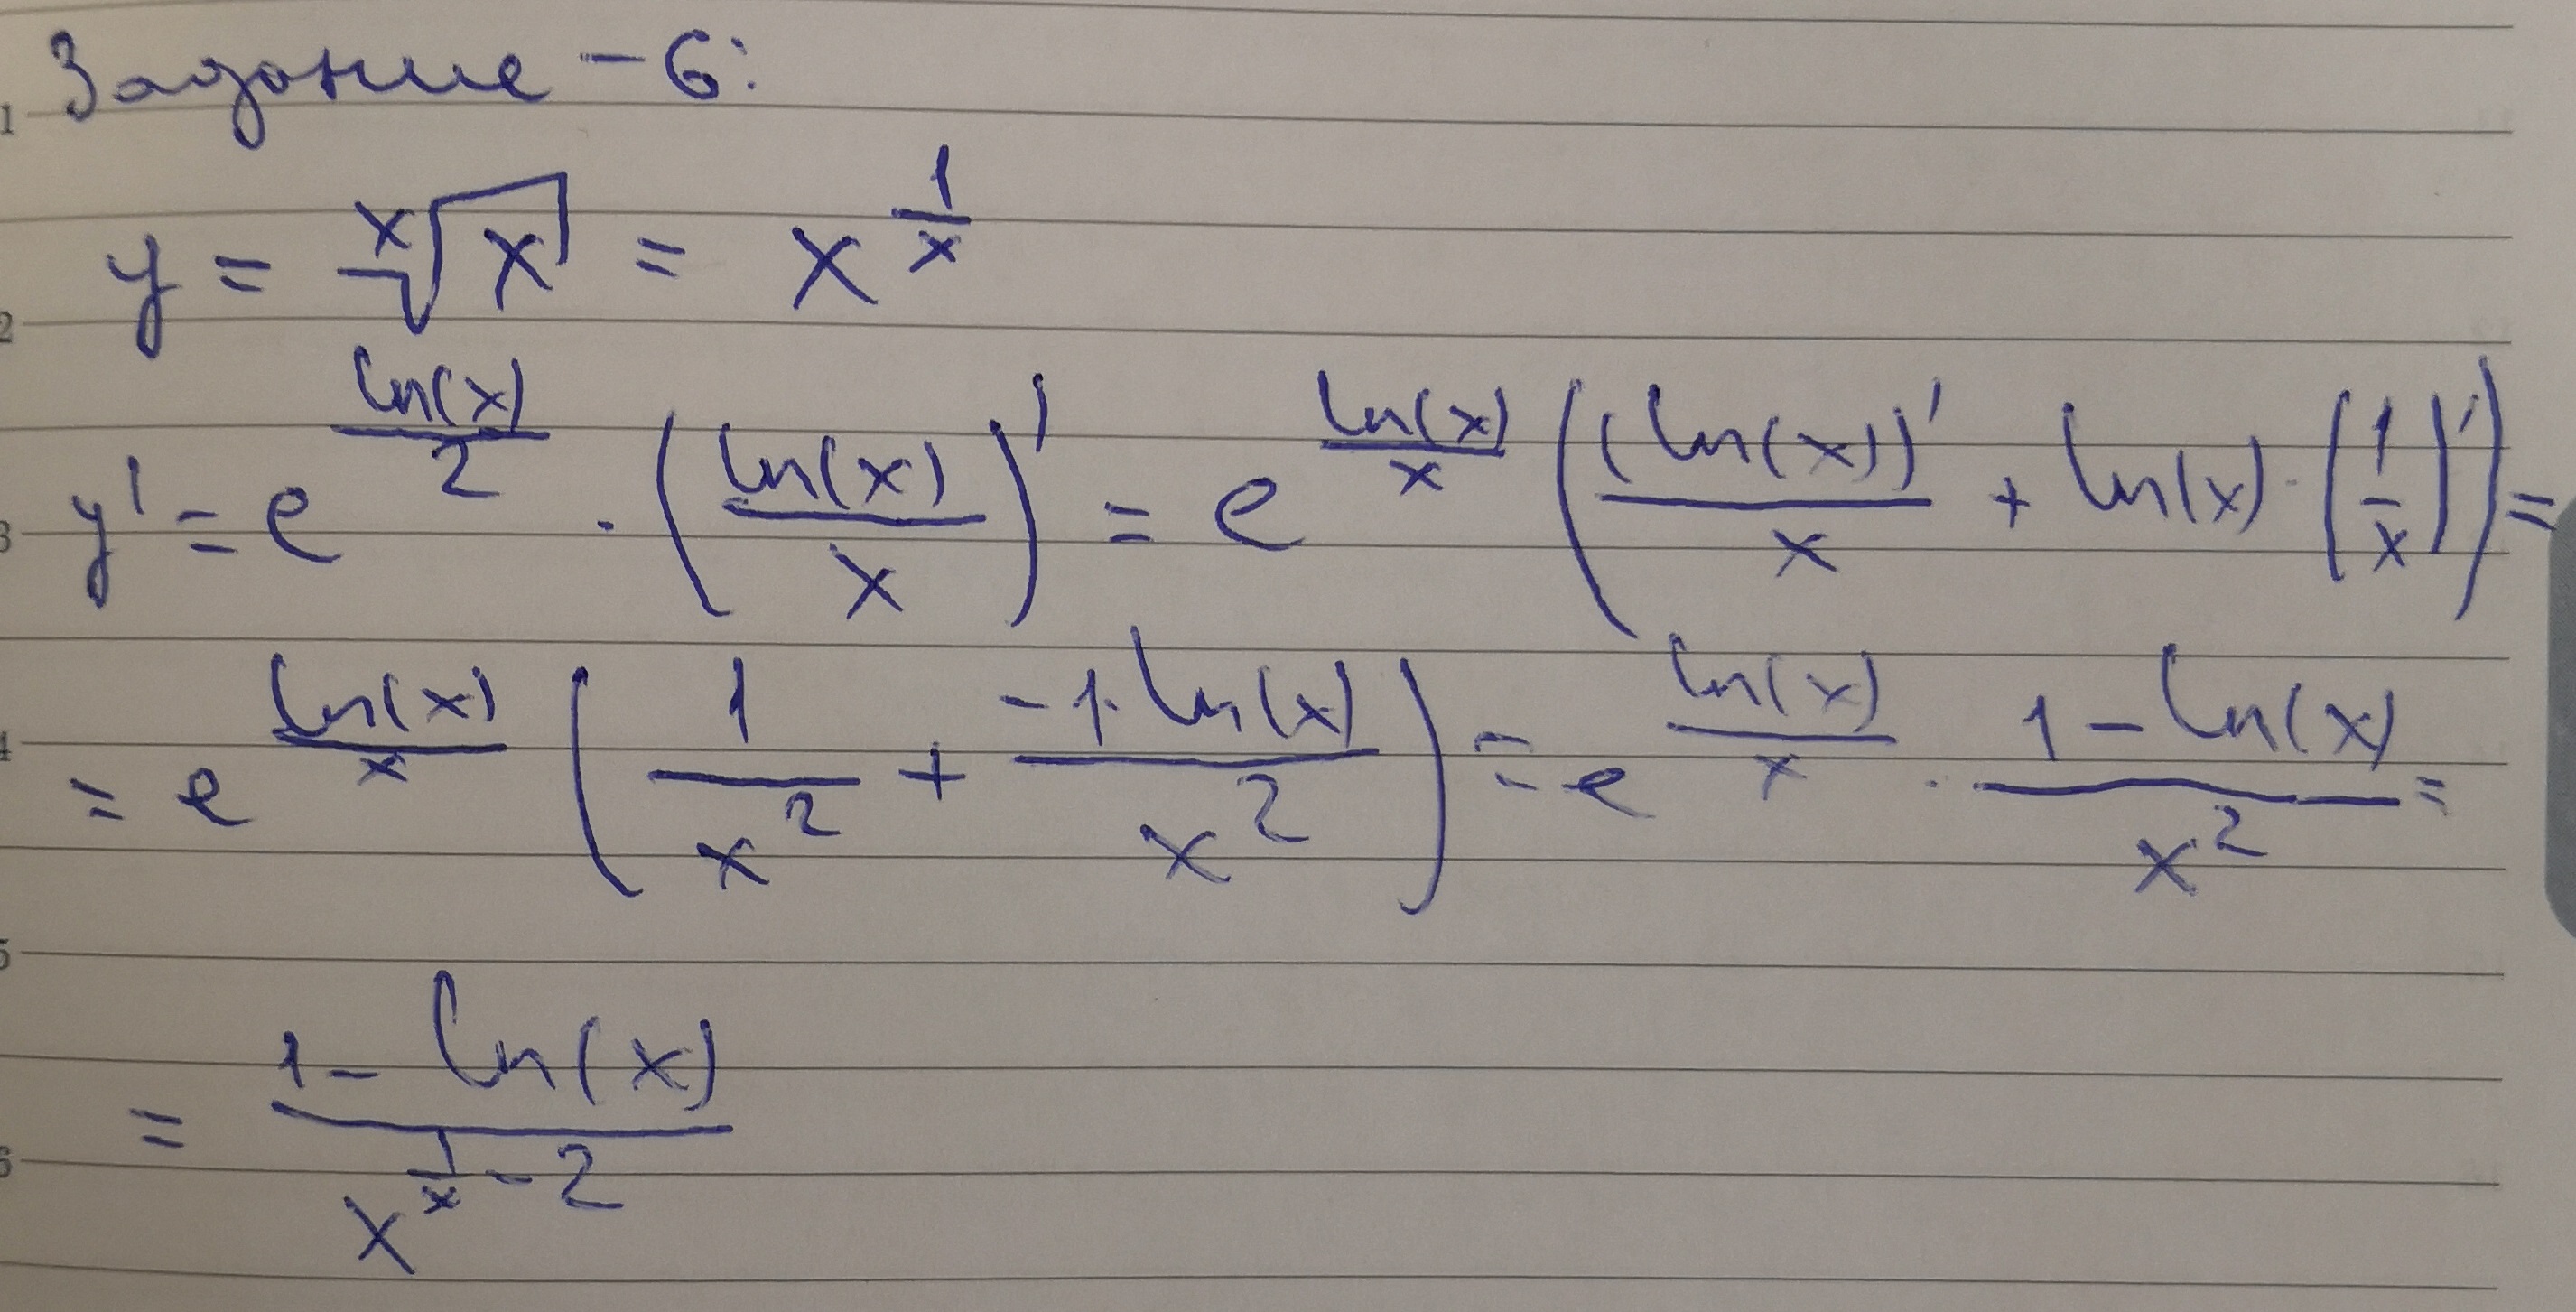 Задание - 6:
y = ˣ√x = x^(1/x)
y' = e^(ln(x)/2) · (ln(x)/x)' = e^(ln(x)/x) ((ln(x))'/x + ln(x) · (1/x)') =
= e^(ln(x)/x) (1/x² + -1·ln(x)/x²) = e^(ln(x)/x) · (1-ln(x))/x² =
= (1-ln(x))/x^(1/x - 2)